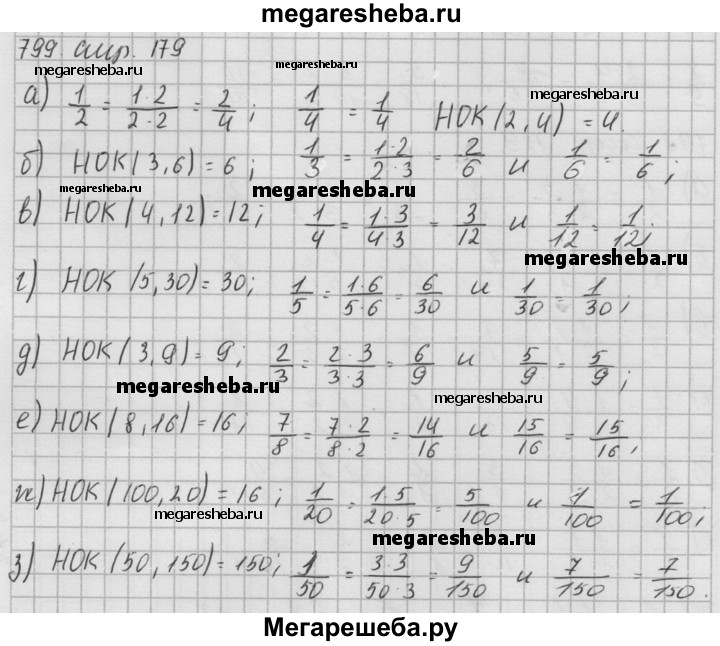 megaresheba.ru
799 стр. 179
megaresheba.ru megaresheba.ru megaresheba.ru
а) 1/2 = 1·2/2·2 = 2/4; 1/4 = 1/4 НОК(2,4) = 4.
б) НОК(3,6) = 6; 1/3 = 1·2/2·3 = 2/6 и 1/6 = 1/6;
megaresheba.ru megaresheba.ru
в) НОК(4,12) = 12; 1/4 = 1·3/4·3 = 3/12 и 1/12 = 1/12;
megaresheba.ru
г) НОК(5,30) = 30; 1/5 = 1·6/5·6 = 6/30 и 1/30 = 1/30;
д) НОК(3,9) = 9; 2/3 = 2·3/3·3 = 6/9 и 5/9 = 5/9;
megaresheba.ru megaresheba.ru
е) НОК(8,16) = 16; 7/8 = 7·2/8·2 = 14/16 и 15/16 = 15/16;
ж) НОК(100,20) = 16; 1/20 = 1·5/20·5 = 5/100 и 1/100 = 1/100;
megaresheba.ru megaresheba.ru
з) НОК(50,150) = 150; 1/50 = 3·3/50·3 = 9/150 и 7/150 = 7/150.
Мегарешеба.ру